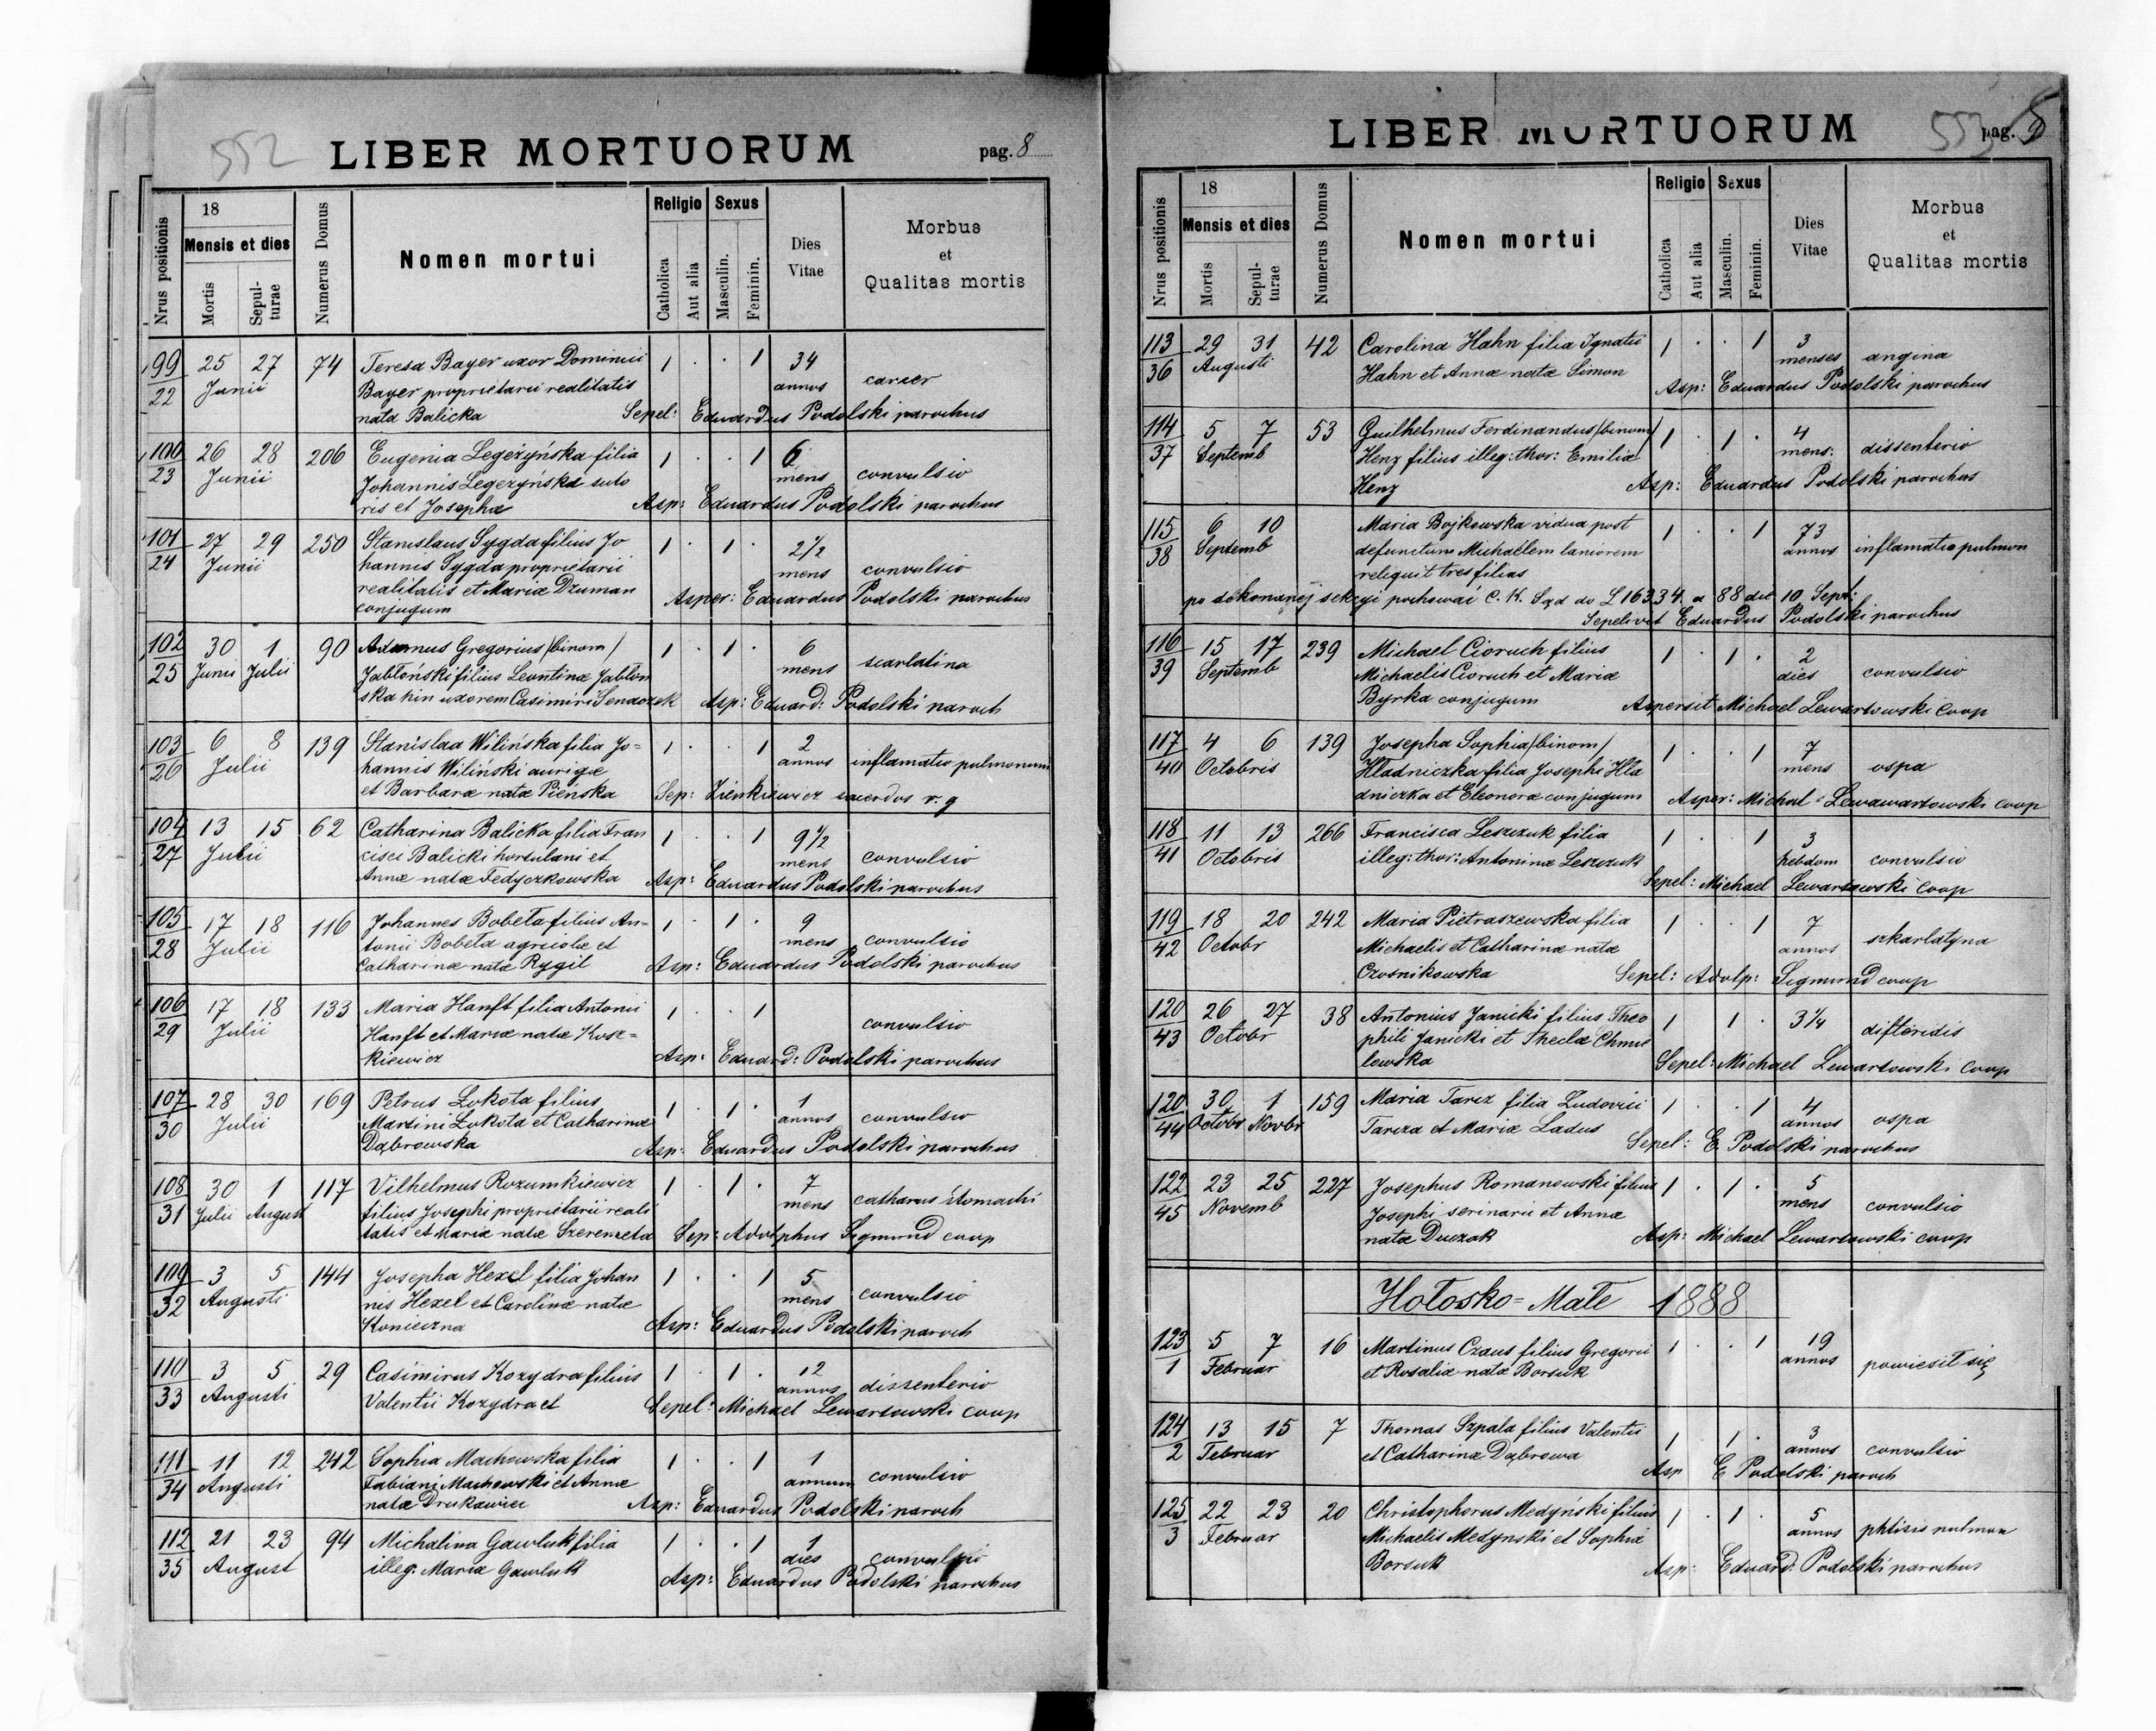 552
LIBER MORTUORUM
pag. 8
Nrus positionis
18
Mensis et dies
Mortis
Sepul-
turae
Numerus Domus
Nomen mortui
Religio
Catholica
Aut alia
Sexus
Masculin.
Feminin.
Dies
Vitae
Morbus
et
Qualitas mortis
99 25 27 74 Teresa Bayer uxor Dominici 1 . . 1 34
22 Junii Bayer proprietarii realitatis annos cancer
nata Balicka Sepel: Eduardus Podolski parochus
100 26 28 206 Eugenia Legeżyńska filia 1 . . 1 6
23 Junii Johannis Legeżyńska suto mens convulsio
ris et Josephæ Asp: Eduardus Podolski parochus
101 27 29 250 Stanislaus Sygda filius Jo 1 . 1 . 2 1/2
24 Junii hannis Sygda proprietarii mens convulsio
realitatis et Mariæ Dzuman Asper: Eduardus Podolski parochus
conjugum
102 30 1 90 Adamus Gregorius /binom/ 1 . 1 . 6
25 Junii Julii Jabłoński filius Leontinæ Jabłon mens scarlatina
ska hin uxorem Casimiri Asp: Eduard: Podolski paroch
103 6 8 139 Stanislaa Wilińska filia Jo= 1 . . 1 2
26 Julii hannis Wiliński aurigæ annos inflamatio pulmonum
et Barbaræ natæ Pieńska Sep: Zienkiewicz sacerdos r. g
104 13 15 62 Catharina Balicka filia Fran 1 . . 1 9 1/2
27 Julii cisci Balicki hortulani et mens convulsio
Annæ natæ Fedyczkowska Asp: Eduardus Podolski parochus
105 17 18 116 Johannes Bobeta filius An= 1 . 1 . 9
28 Julii tonii Bobeta agricolæ et mens convulsio
Catharinæ natæ Rygil Asp: Eduardus Podolski parochus
106 17 18 133 Maria Hanft filia Antonii 1 . 1
29 Julii Hanft et Mariæ natæ Kosz= convulsio
kiewicz Asp: Eduard: Podolski parochus
107 28 30 169 Petrus Lokota filius 1 . 1 . 1
30 Julii Martini Lokota et Catharinæ annos convulsio
Dąbrowska Asp: Eduardus Podolski parochus
108 30 1 117 Vilhelmus Rozumkiewicz 1 . 1 . 7
31 Julii August filius Josephi proprietarii reali mens catharus stomachi
tatis et Mariæ natæ Szeremeta Sep: Adolphus Sigmund coop
109 3 5 144 Josepha Hexel filia Johan 1 . . 1 5
32 Augusti nis Hexel et Carolinæ natæ mens convulsio
Konieczna Asp: Eduardus Podolski paroch
110 3 5 29 Casimirus Kozydra filius 1 . 1 . 12
33 Augusti Valentii Kozydra et annos dissenterio
Sepel: Michael Lewartowski coop
111 11 12 242 Sophia Machowska filia 1 . . 1 1
34 Augusti Fabiani Machowski et Annæ annum convulsio
natæ Drukawiec Asp: Eduardus Podolski paroch
112 21 23 94 Michalina Gawluk filia 1 . . 1 1
35 August illeg. Mariæ Gawluk dies convulsio
Asp: Eduardus Podolski parochus
553
LIBER MORTUORUM
pag.
Nrus positionis
18
Mensis et dies
Mortis
Sepul-
turae
Numerus Domus
Nomen mortui
Religio
Catholica
Aut alia
Sexus
Masculin.
Feminin.
Dies
Vitae
Morbus
et
Qualitas mortis
113 29 31 42 Carolina Hahn filia Ignatii 1 . . 1 3
36 Augusti Hahn et Annæ natæ Simon menses angina
Asp: Eduardus Podolski parochus
114 5 7 53 Guilhelmus Ferdinandus /binom/ 1 . 1 . 4
37 Septemb Henz filius illeg: thor: Emiliæ mens: dissenterio
Henz Asp: Eduardus Podolski parochus
115 6 10 Maria Bojkowska vidua post 1 . . 1 73
38 Septemb defunctum Michaëlem laniorem annos inflamatio pulmon
reliquit tres filias
po dokonanej sekcyi pochować C. K. Sąd do L 16334 a 88 die 10 Sept:
Sepelivit Eduardus Podolski parochus
116 15 17 239 Michael Cioruch filius 1 . 1 . 2
39 Septemb Michaelis Cioruch et Mariæ dies convulsio
Byrka conjugum Aspersit Michael Lewartowski Coop
117 4 6 139 Josepha Sophia /binom/ 1 . . 1 7
40 Octobris Hładniczka filia Josephi Hła mens ospa
dniczka et Eleonoræ conjugum Asper: Michal Lewawartowski coop
118 11 13 266 Francisca Leszczuk filia 1 . . 1 3
41 Octobris illeg: thor: Antoninæ Leszczuk hebdom convulsio
Sepel: Michael Lewartowski coop
119 18 20 242 Maria Pietraszewska filia 1 . . 1 7
42 Octobr Michaelis et Catharinæ natæ annos szkarlatyna
Czosnikowska Sepel: Adolp: Sigmund coop
120 26 27 38 Antonius Janicki filius Theo 1 1 . 3 1/4
43 Octobr phili Janicki et Theclæ Chmie difteridis
lowska Sepel: Michael Lewartowski coop
120 30 1 159 Maria Tarcz filia Ludovici 1 . . 1 4
44 Octobr Novbr Tarcza et Mariæ Ladus annos ospa
Sepel: E. Podolski parochus
122 23 25 227 Josephus Romanowski filius 1 . 1 . 5
45 Novemb Josephi serinarii et Annæ mens convulsio
natæ Duczak Asp: Michael Lewartowski coop
Hołosko=Małe 1888
123 5 7 16 Martinus Czaus filius Gregorii 1 . . 1 19
1 Februar et Rosaliæ natæ Borsuk annos powiesił się
124 13 15 7 Thomas Szpala filius Valentii 1 1 . 3
2 Februar et Catharinæ Dąbrowa annos convulsio
Asp E Podolski paroch
125 22 23 20 Christophorus Medyński filius 1 . 1 . 5
3 Februar Michaelis Medynski et Sophiæ annos phtisis pulmon
Borsuk Asp: Eduard: Podolski parochus